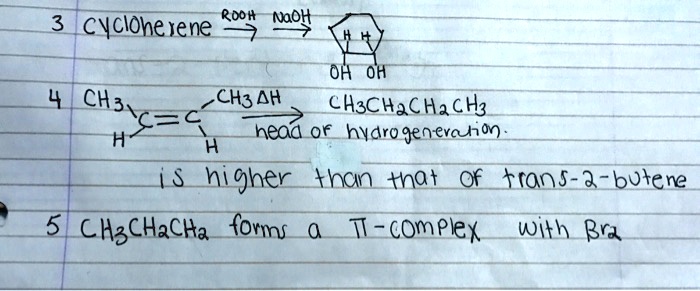 3 cyclohexene ROOH NaOH
H H
OH OH
4 CH3 C=C CH3 ΔH CH3CH2CH2CH3
H H head of hydrogeneration.
is higher than that of trans-2-butene
5 CH3CH2CH2 forms a π-complex with Br2